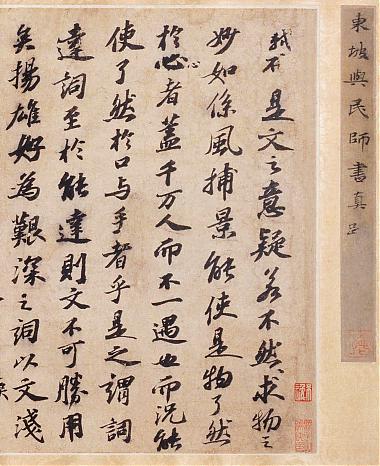 東坡與民師書真跡
不是文之意疑若不然求物之
妙如係風捕景能使是物了然
於心者蓋千万人而不一遇也而況能
使了然於口与手者乎是之謂詞
達詞至於能達則文不可勝用
矣揚雄好為艱深之詞以文淺